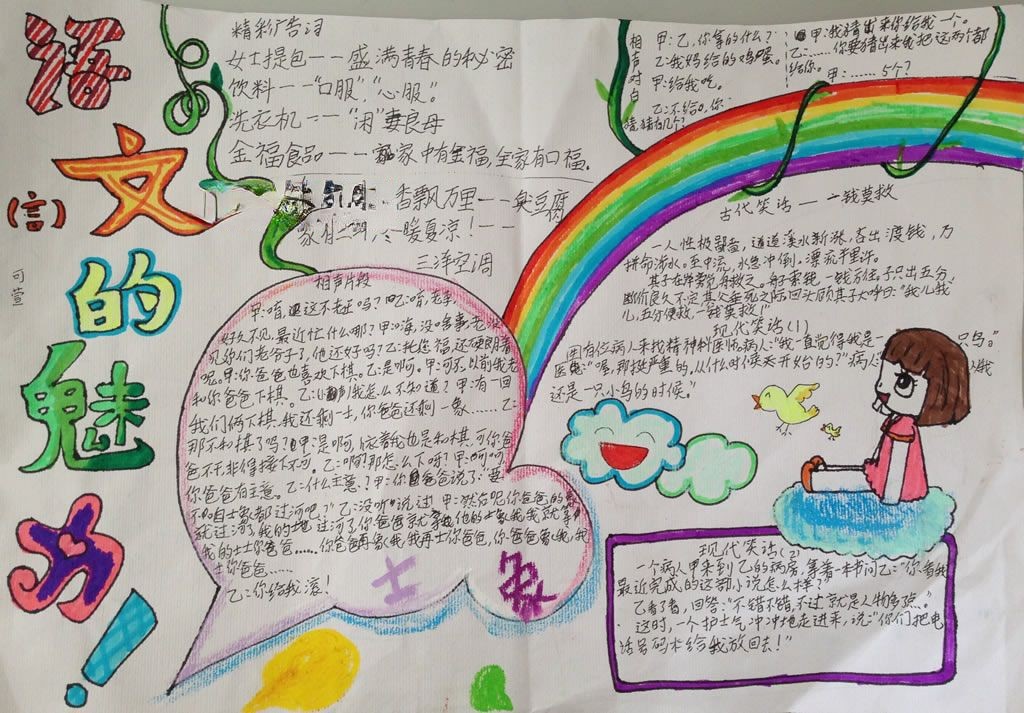 语
文
(言)
的
魅
力
!
可萱
精彩广告词
女士提包——盛满青春的秘密
饮料——“口服”,“心服”。
洗衣机——“闲”妻良母
金福食品——家中有金福,全家有口福。
香飘万里——臭豆腐
冬暖夏凉!——
三洋空调
相声对白
甲:乙,你拿的什么?
乙:我妈给的鸡蛋。
甲:给我吃。
乙:不给。你
猜猜有几个?
甲:我猜出来你给我一个。
乙:……你要猜出来我把这两个都
给你。
甲:……5个?
相声片段
甲:哟,这不老王吗?乙:哈,老李,
好久不见,最近忙什么哪?甲:嗨,没啥事,老没
见你们老爷子了,他还好吗?乙:托您福,还硬朗着
呢。甲:你爸爸也喜欢下棋。乙:是啊。甲:可不,以前我老
和你爸爸下棋。乙:我怎么不知道?甲:有一回
我们俩下棋,我还剩一士,你爸爸还剩一象……乙:
那不和棋了吗?甲:是啊,我也是和棋,可你爸
爸不干,非得接下不可。乙:啊?那怎么下呀?甲:呵呵
你爸爸有主意。乙:什么主意?甲:你爸爸说了:“要
不咱士象都过河吧?”乙:没听说过!甲:然后呢,你爸爸的象
就过河,我的士也过河了,你爸爸就拿他的士象我,我就拿
我的士你爸爸……你爸爸再象我,我再士你爸爸,你爸爸象我,我
士你爸爸……
乙:你给我滚!
士
象
古代笑话——一钱莫救
一人性极鄙啬,道遇溪水新涨,吝出渡钱,乃
拼命涉水。至中流,水急冲倒,漂流半里许。
其子在岸旁觅舟救之。舟子索钱,一钱方往。子只出五分,
断价良久不定,其父垂死之际回头顾其子大呼曰:“我儿我
儿,五分便救,一钱莫救!”
现代笑话(1)
医:“喔,那挺严重的,从什么时候开始的?”病人:
还是一只小鸟的时候。”
现代笑话(2)
一个病人甲来到乙的病房,拿着一本书问乙:“你看我
最近完成的这部小说怎么样?”
乙看了看,回答:“不错不错,不过就是人物多点。”
这时,一个护士气冲冲地走进来,说:“你们把电
话号码本给我放回去!”